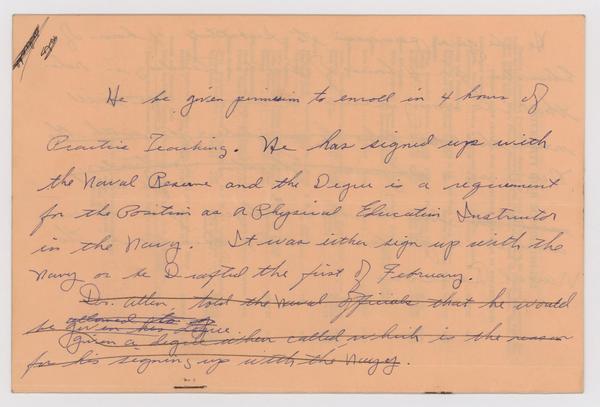 He be given permission to enroll in 4 hours of
Practice Teaching. He has signed up with
the Naval Reserve and the Degree is a requirement
for the Position as a Physical Education Instructor
in the Navy. It was either sign up with the
Navy or be Drafted the first of February.
Dr. Allen told the Naval officials that he would
allowed to
be given his degree
given a degree when called which is the reason
for his signing up with the Navy.